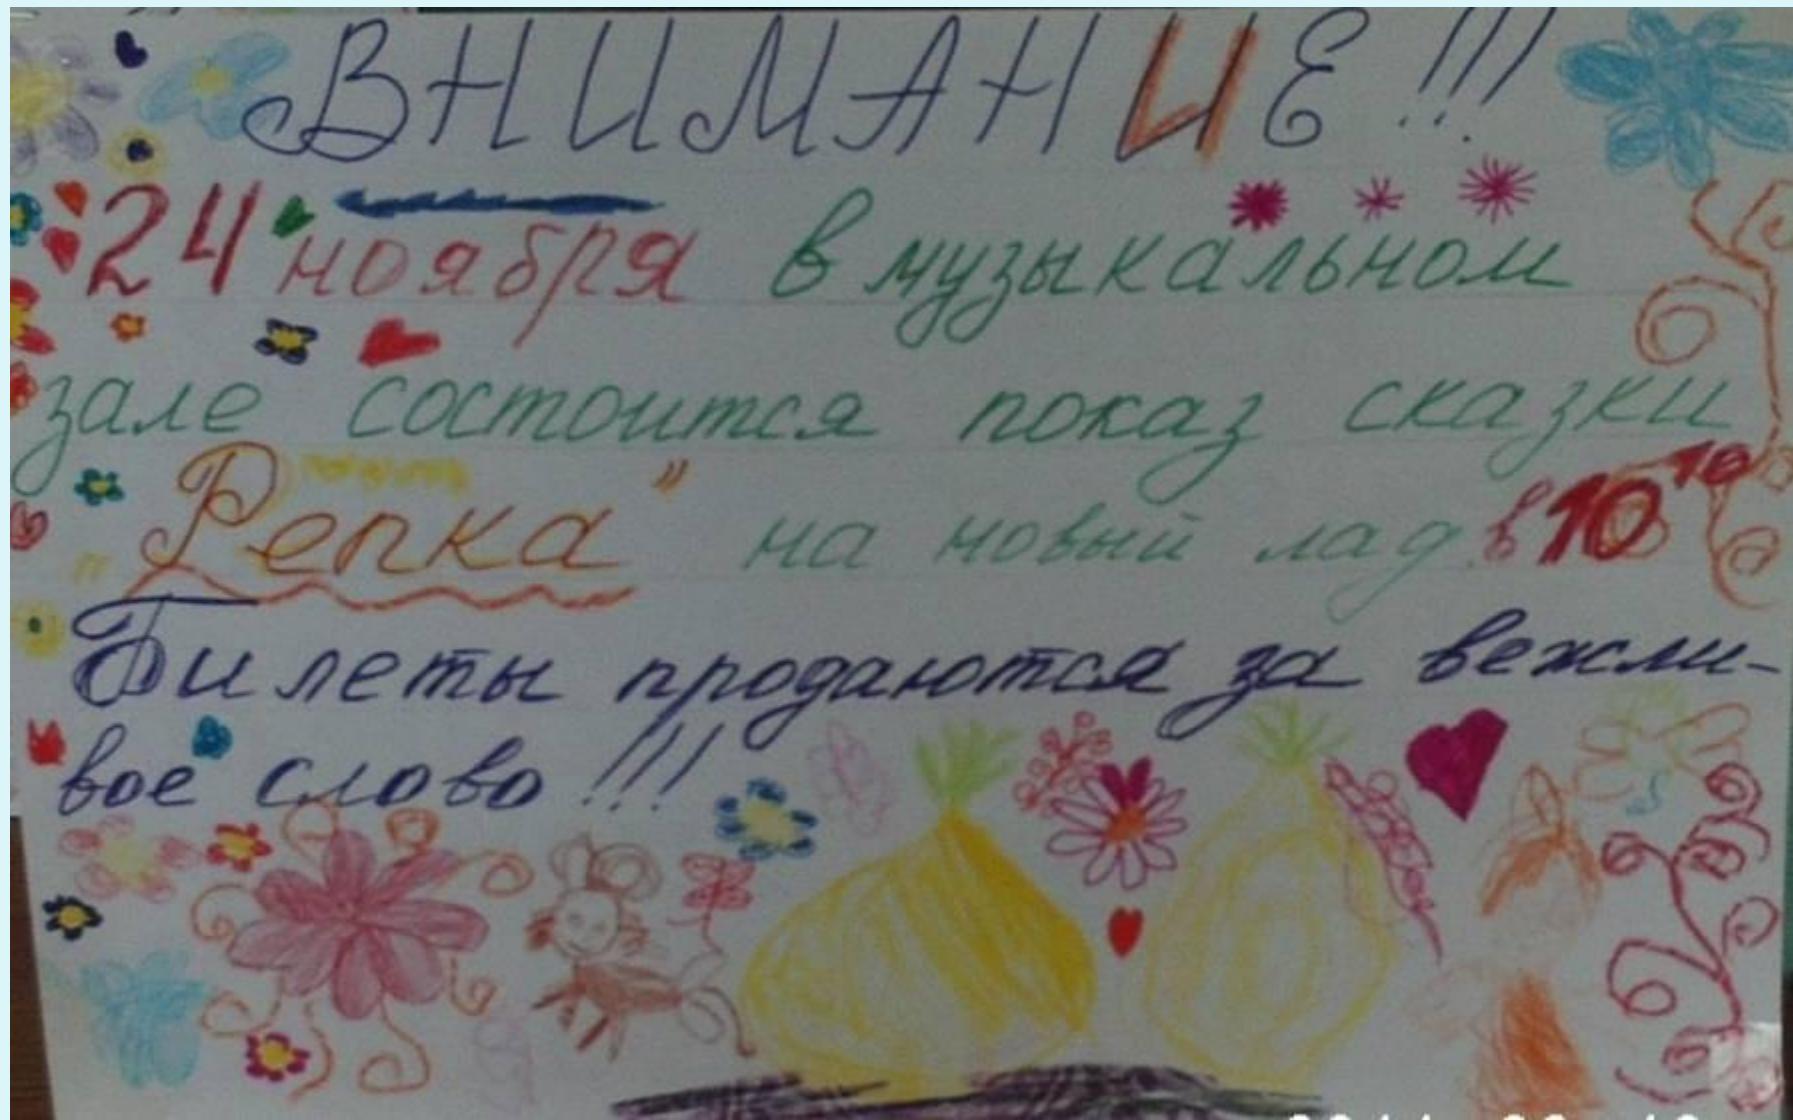 ВНИМАНИЕ!!!
24 ноября в музыкальном
зале состоится показ сказки
"Репка" на новый лад. в 10 10
Билеты продаются за вежли-
вое слово!!!